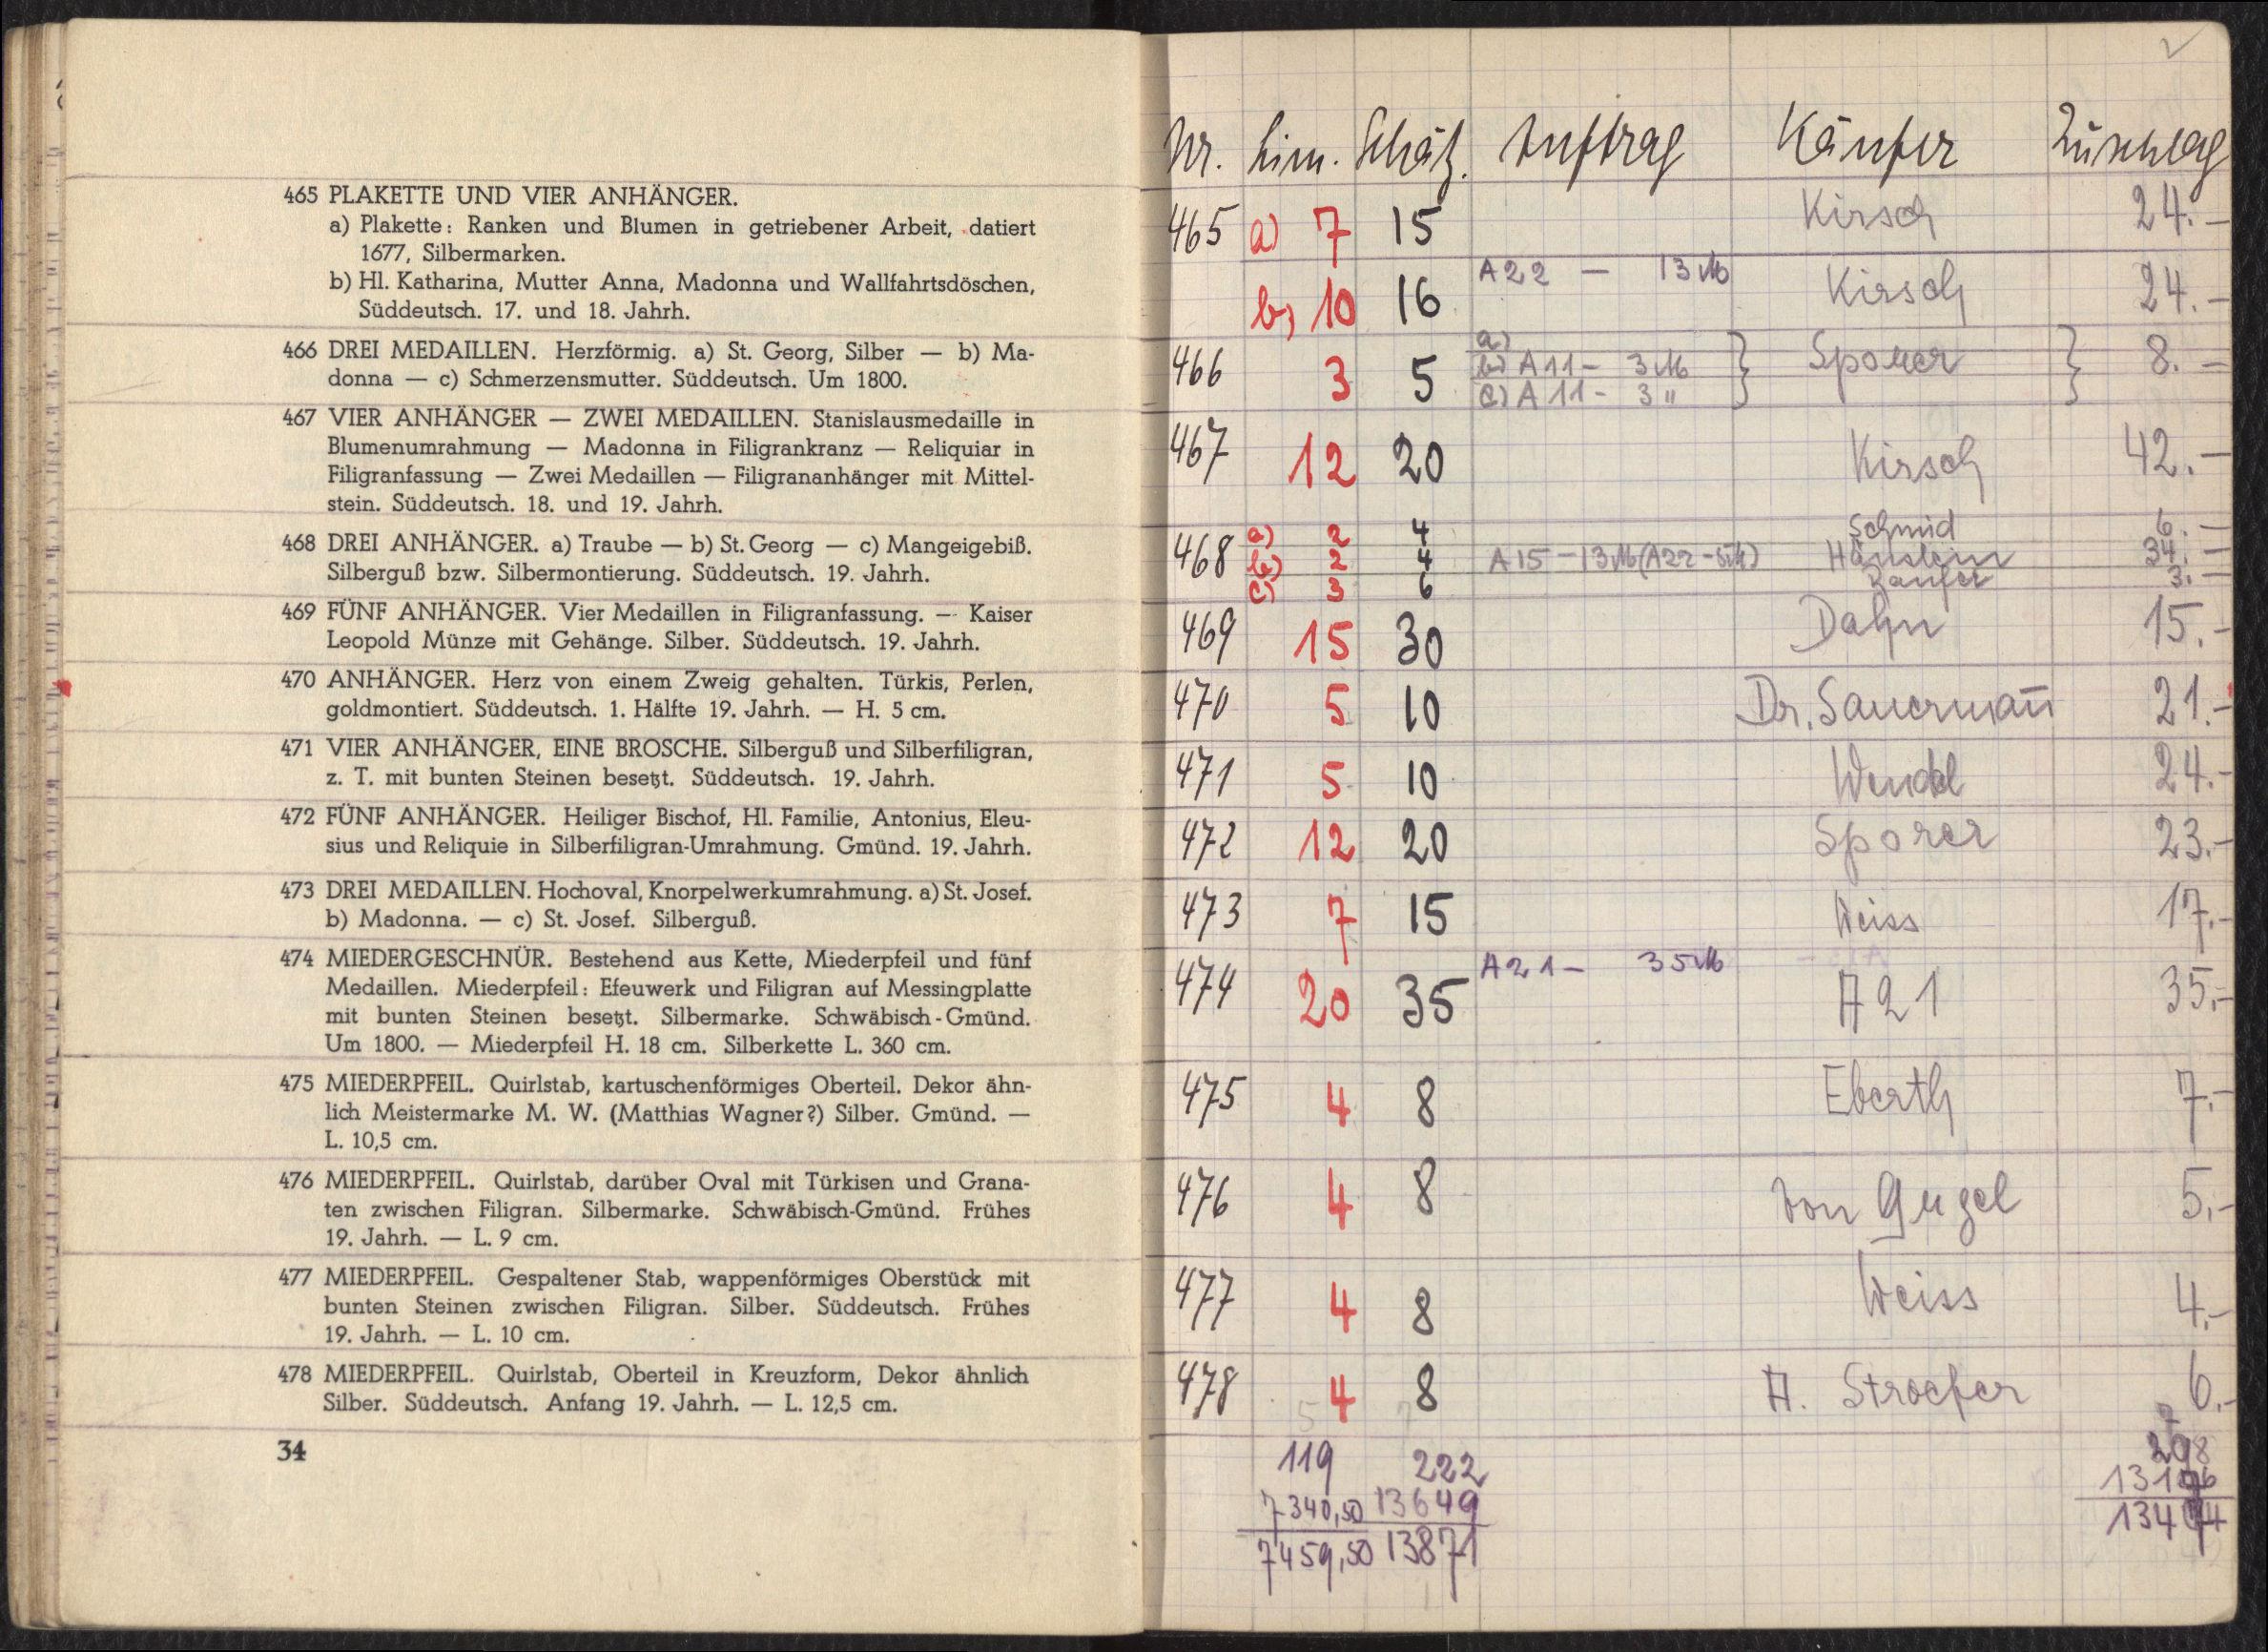 465 PLAKETTE UND VIER ANHÄNGER.
a) Plakette: Ranken und Blumen in getriebener Arbeit, datiert
1677, Silbermarken.
b) Hl. Katharina, Mutter Anna, Madonna und Wallfahrtsdöschen,
Süddeutsch. 17. und 18. Jahrh.
466 DREI MEDAILLEN. Herzförmig. a) St. Georg, Silber — b) Ma-
donna — c) Schmerzensmutter. Süddeutsch. Um 1800.
467 VIER ANHÄNGER — ZWEI MEDAILLEN. Stanislausmedaille in
Blumenumrahmung — Madonna in Filigrankranz — Reliquiar in
Filigranfassung — Zwei Medaillen — Filigrananhänger mit Mittel-
stein. Süddeutsch. 18. und 19. Jahrh.
468 DREI ANHÄNGER. a) Traube — b) St. Georg — c) Mangeigebiß.
Silberguß bzw. Silbermontierung. Süddeutsch. 19. Jahrh.
469 FÜNF ANHÄNGER. Vier Medaillen in Filigranfassung. — Kaiser
Leopold Münze mit Gehänge. Silber. Süddeutsch. 19. Jahrh.
470 ANHÄNGER. Herz von einem Zweig gehalten. Türkis, Perlen,
goldmontiert. Süddeutsch. 1. Hälfte 19. Jahrh. — H. 5 cm.
471 VIER ANHÄNGER, EINE BROSCHE. Silberguß und Silberfiligran,
z. T. mit bunten Steinen besetzt. Süddeutsch. 19. Jahrh.
472 FÜNF ANHÄNGER. Heiliger Bischof, Hl. Familie, Antonius, Eleu-
sius und Reliquie in Silberfiligran-Umrahmung. Gmünd. 19. Jahrh.
473 DREI MEDAILLEN. Hochoval, Knorpelwerkumrahmung. a) St. Josef.
b) Madonna. — c) St. Josef. Silberguß.
474 MIEDERGESCHNÜR. Bestehend aus Kette, Miederpfeil und fünf
Medaillen. Miederpfeil: Efeuwerk und Filigran auf Messingplatte
mit bunten Steinen besetzt. Silbermarke. Schwäbisch-Gmünd.
Um 1800. — Miederpfeil H. 18 cm. Silberkette L. 360 cm.
475 MIEDERPFEIL. Quirlstab, kartuschenförmiges Oberteil. Dekor ähn-
lich Meistermarke M. W. (Matthias Wagner?) Silber. Gmünd. —
L. 10,5 cm.
476 MIEDERPFEIL. Quirlstab, darüber Oval mit Türkisen und Grana-
ten zwischen Filigran. Silbermarke. Schwäbisch-Gmünd. Frühes
19. Jahrh. — L. 9 cm.
477 MIEDERPFEIL. Gespaltener Stab, wappenförmiges Oberstück mit
bunten Steinen zwischen Filigran. Silber. Süddeutsch. Frühes
19. Jahrh. — L. 10 cm.
478 MIEDERPFEIL. Quirlstab, Oberteil in Kreuzform, Dekor ähnlich
Silber. Süddeutsch. Anfang 19. Jahrh. — L. 12,5 cm.
34
Nr. Lim. Schätz. Auftrag Käufer Zuschlag
465 a) 7 15 Kirsch 24.-
b) 10 16 A22 — 13 M Kirsch 24.-
466 3 5 a) b) A11 - 3 M c) A11 - 3 " Sporer 8.-
467 12 20 Kirsch 42.-
468 a) 2 4 Schmid 6.-
b) 2 4 A15 - 13 M (A22 - 5 M) Hanstein 34.-
c) 3 6 3.-
469 15 30 Dahn 15.-
470 5 10 Dr. Sauermañ 21.-
471 5 10 Wendel 24.-
472 12 20 Sporer 23.-
473 7 15 Weiss 17.-
474 20 35 A21 - 35 M A21 35.-
475 4 8 Eberth 7.-
476 4 8 von Gugel 5.-
477 4 8 Weiss 4.-
478 4 8 A. Stroefer 6.-
119 222 298
7340,50 13649
7459,50 13871